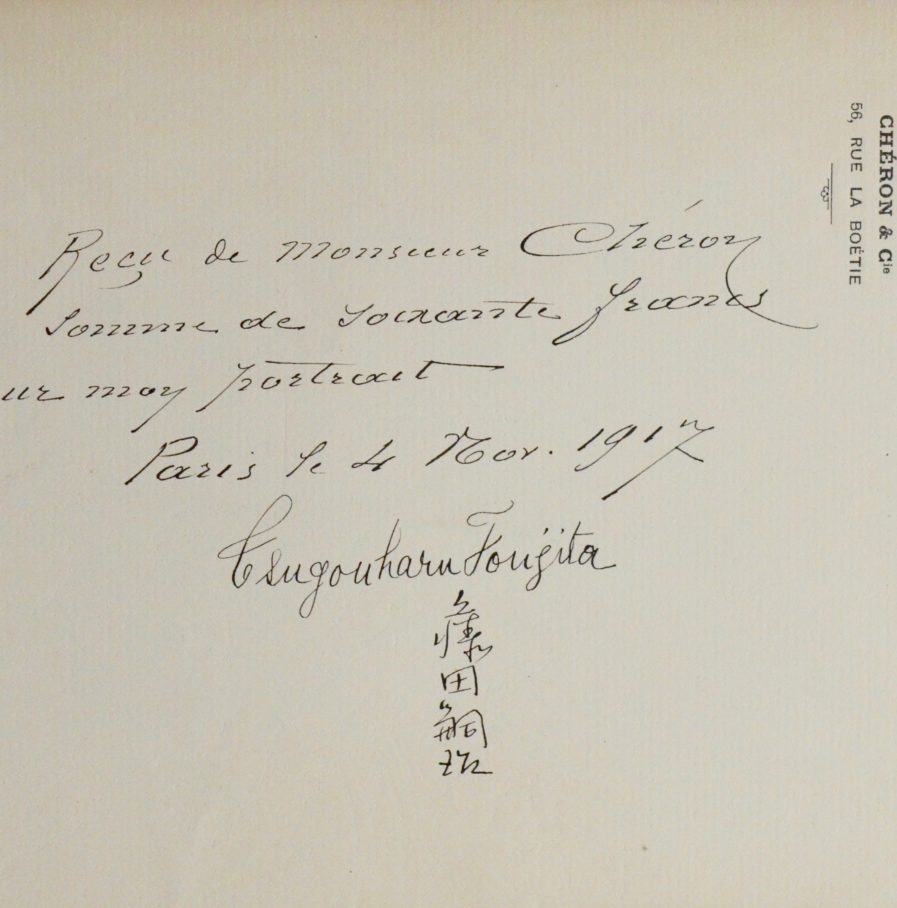 CHÉRON & Cie
56, RUE LA BOÉTIE
Reçu de Monsieur Chéron
somme de soixante francs
ur moy portrait
Paris le 4 Nov. 1917
Tsugouharu Foujita
藤田嗣治